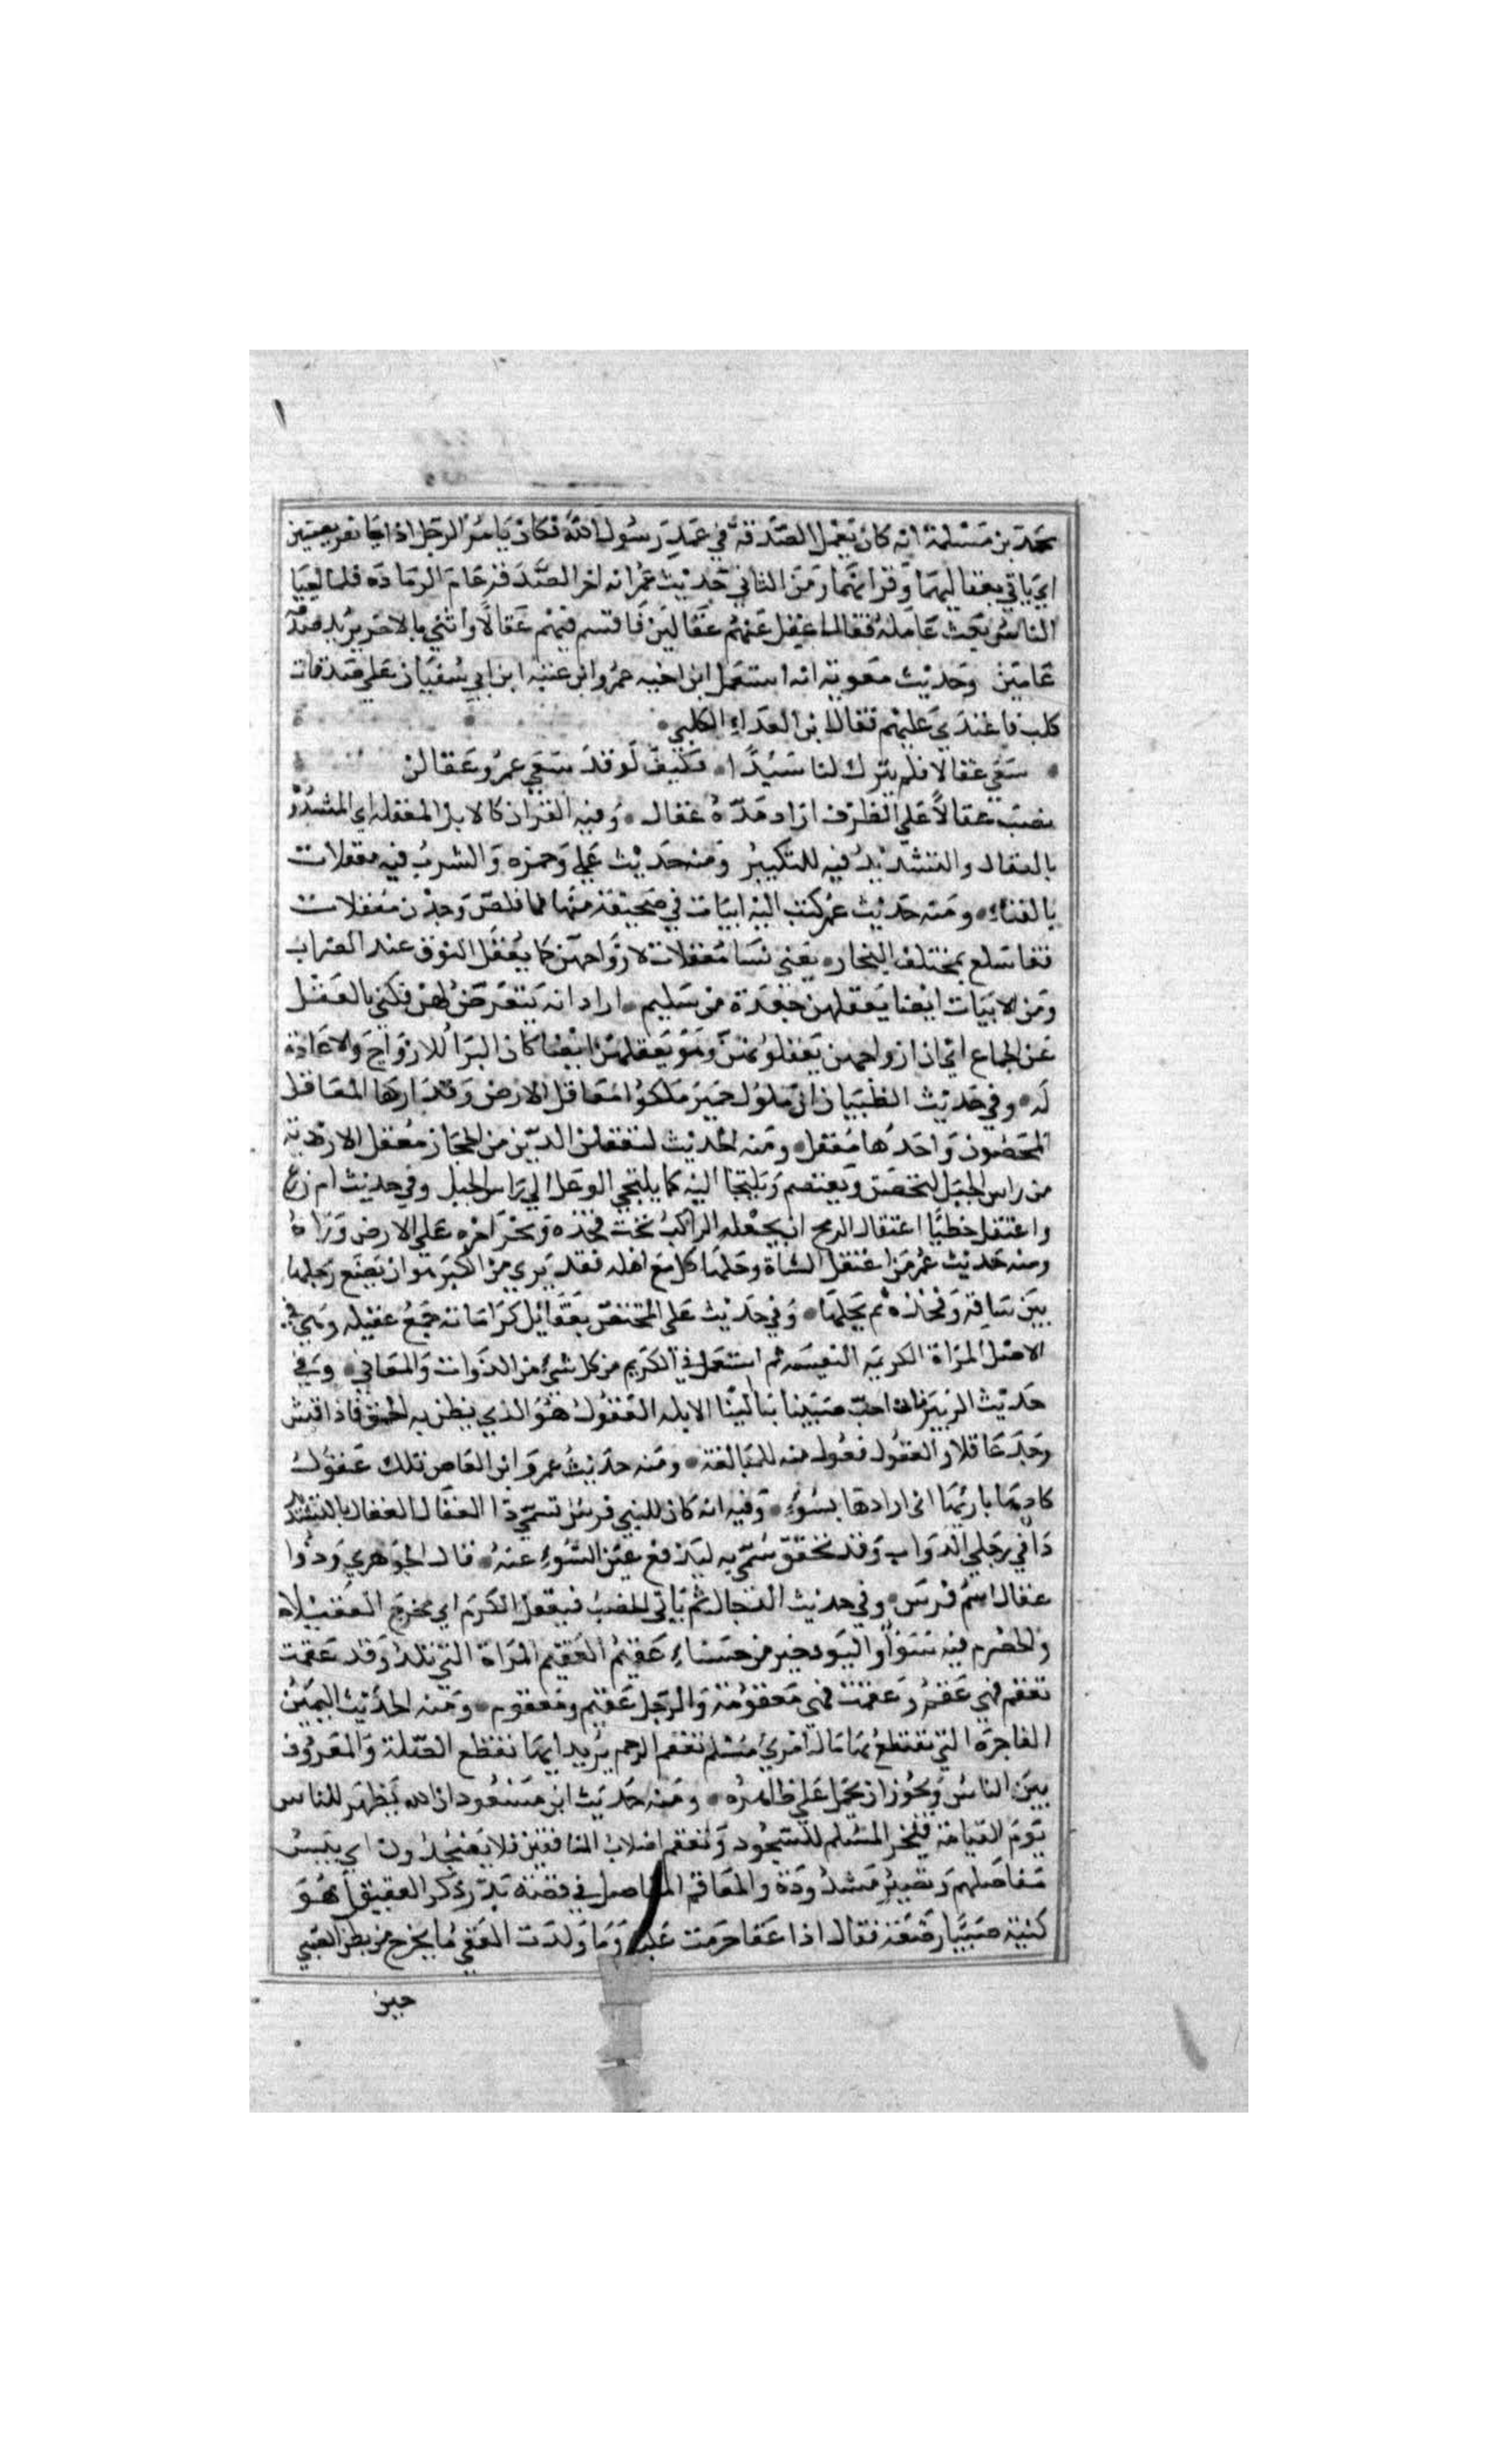 محمد بن مسلمة انه كان يعمل الصدقة في عهد رسول الله فكان يامر الرجل اذا جا بفريضتين
اي ياتي بعقاليهما وقرانهما ومن الثاني حديث عمر انه اخر الصدقة عام الرمادة فلما احيا
الناس بعث عامله فقال اعقل عنهم عقالين فاقسم فيهم عقالا واتني بالاخر يريد صدقة
عامين وحديث معوية انه استعمل ابن اخيه عمرو ابن عتبه ابن ابي سفيان على صدقات
كلب فاعتدي عليهم فقال ابن العداء الكلبي
سعي عقالا فلم يترك لنا سبدا فكيف لو قد سعي عمرو عقالين
نصب عقالا على الظرف اراد مدة عقال وفيه القران كالابل المعقله اي المشدودة
بالعقال والتشديد فيه للتكثير ومنه حديث علي وحمزه والشرب فيه معقلات
بالفناء ومنه حديث عمر كتب اليه ابيات في صحيفة منها فما قلص وجدن معقلات
قفا سلع بمختلف النجار يعني نسا معقلات لازواجهن كما يعقل النوق عند الضراب
ومن الابيات ايضا يعقلهن جعدة من سليم اراد انه يتعرض لهن فكني بالعقل
عن الجماع اي ان ازواجهن يعقلونهن وهو يعقلهن ايضا كان البدا للازواج والاعادة
له وفي حديث الظبيان ان ملوك حمير ملكوا معاقل الارض وقرارها المعاقل
الحصون واحدها معقل ومنه الحديث ليعقلن الدين من الحجاز معقل الاروية
من راس الجبل ليتحصن ويعتصم ويلتجا اليه كما يلتجي الوعل الي راس الجبل وفي حديث ام زرع
واعتقل خطيا اعتقال الرمح ان يجعله الراكب تحت فخذه ويجر اخره على الارض وراه
ومنه حديث عمر من اعتقل الشاة وحلبها واكل مع اهله فقد بري من الكبر هو ان يضع رجلها
بين ساقه وفخذه ثم يحلبها وفي حديث على المختص بعقائل كراماته جمع عقيله وهي في
الاصل المراة الكريمه النفيسه ثم استعمل في الكريم من كل شي من الذوات والمعاني وفي
حديث الزبرقان احب صبيننا الينا الابله العقول هو الذي يظن به الحمق فاذا فتش
وجد عاقلا والعقول فعول منه للمبالغة ومنه حديث عمرو ابن العاص تلك عقول
كادها باريها اي ارادها بسوء وفيه انه كان للنبي فرس تسمي ذا العقال العقال بالتشديد
دا في رجلي الدواب وقد تخفف سمي به ليدفع عين السوء عنه قال الجوهري وذوا
عقال اسم فرس وفي حديث الدجال ثم ياتي الخصب فيعقل الكرم اي يخرج العقيلا
والحضرم فيه سواو البود خير من حسناء عقيم العقيم المراة التي تلد وقد عقمت
تعقم فهي عقيم وعقمت فهي معقومة والرجل عقيم ومعقوم ومنه الحديث اليمين
الفاجرة التي تقتطع بها مال امري مسلم تعقم الرحم يريد انها تقطع الصلة والمعروف
بين الناس ويجوز ان يحمل على ظاهره ومنه حديث ابن مسعود ان الله يظهر للناس
يوم القيامة فيخر المسلم للسجود وتعقم اصلاب المنافقين فلا يسجدون اي ييبس
مفاصلهم وتصير مشدودة والمعاقم المفاصل في قصة بدر ذكر العقيق هو
كنية صبيا رضعة فقال اذا عقا حرمت عليه وما ولدت العقي ما يخرج من بطن الصبي
حين